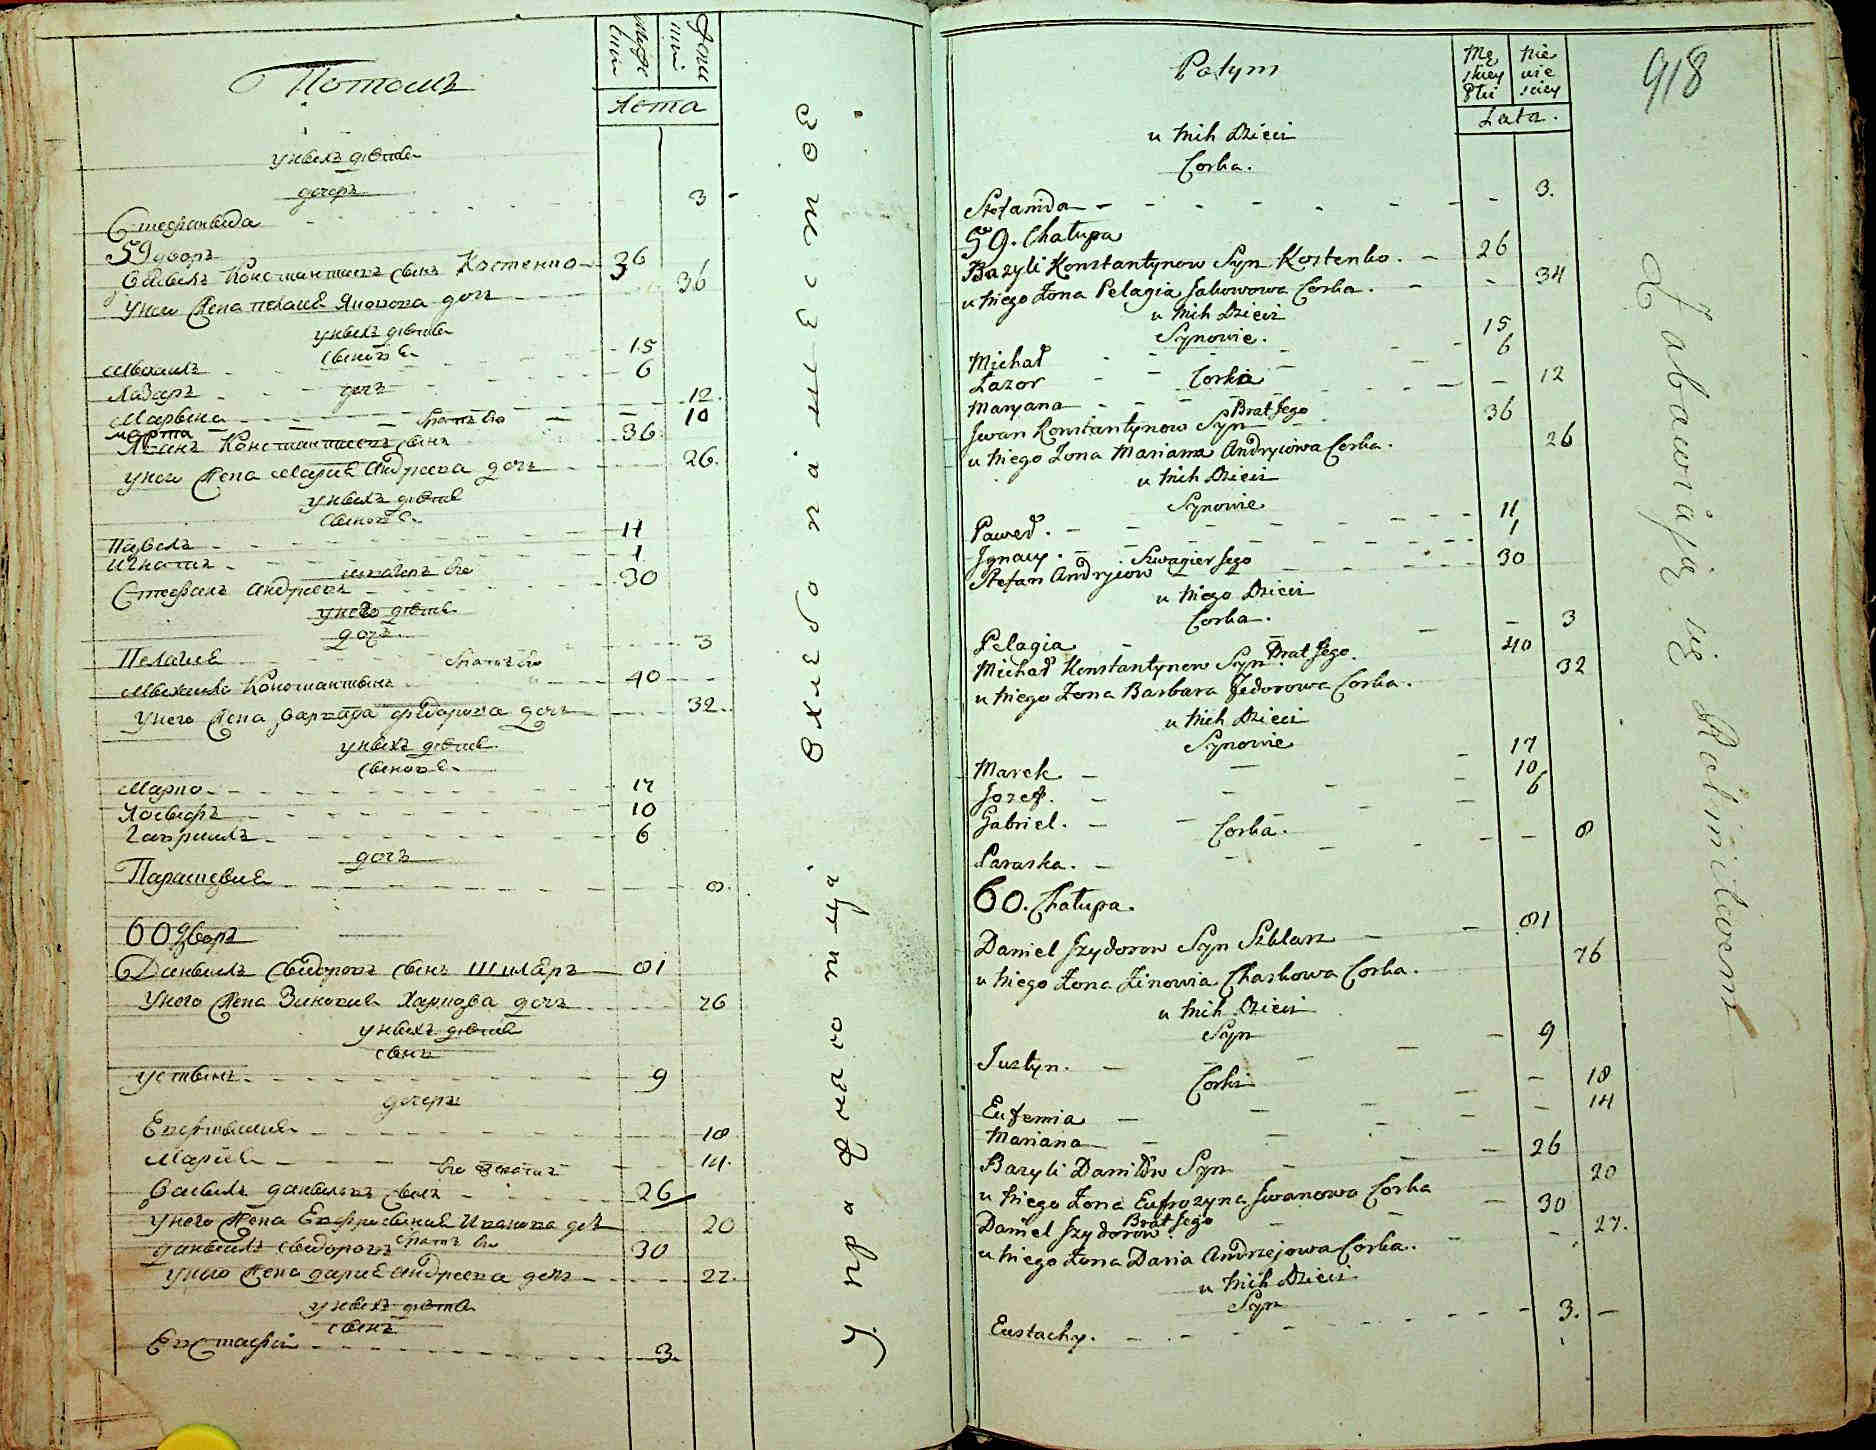 Потомъ
мужс
кии
женс
кии
лета
у нихъ дѣтеи
дочерь
Стефанида 3
59 дворъ
Костенко 36
у него жена Пелагиѣ дочь 36
у нихъ дѣтеи
сыновѣ
Михаилъ 15
Лазарь 6
дочь
Марьяна 12
братъ его
марта 10
Иванъ Константиновъ сынъ 36
у него жена Мариѣ Андреева дочь 26
у нихъ дѣтеи
сыновѣ
Павелъ 11
Игнатъ 1
швагеръ его
Стефанъ Андреевъ 30
у него дѣтеи
дочь
Пелагиѣ 3
братъ его
Михаило Константинъ 40
у него жена Варвара Фѣдорова дочь 32
у нихъ дѣтеи
сыновѣ
Марко 17
Иосифъ 10
Гавриилъ 6
дочь
Парасцевиѣ 8
60 дворъ
Даниилъ Сидоровъ сынъ Шклѣръ 81
у него жена Зиновиѣ Харкова дочь 76
у нихъ дѣтеи
сынъ
Устинъ 9
дочери
Евфимиѣ 18
Мариѣ 14
его братъ
Василь Даниловъ сынъ 26
у него жена Евфросиниѣ Иванова дочь 20
братъ его
Даниилъ Сидоровъ 30
у него жена Дариѣ Андреева дочь 27
у нихъ дѣти
сынъ
Евстафiй 3
у пра
хлебо
Potym
Mę
skiey
Płci
Nie
wie
sciey
Lata.
918
u Nich Dzieci
Corka.
Stefanida 3.
59. Chałupa
Bazyli Konstantynow Syn Kostenko. 26
u Niego Żona Pelagia Jakowowa Corka. 34
u Nich Dzieci
Synowie.
Michał 15
Lazor 6
Corka
Maryana 12
Brat Jego
Jwan Konstantynow Syn 36
u Niego Żona Marianna Andryiowa Corka. 26
u Nich Dzieci
Synowie
Paweł. 11
Jgnacy. 1
Szwagier Jego
Stefan Andryiow 30
u Niego Dzieci
Corka.
Pelagia 3
Michał Konstantynow Syn Brat Jego. 40
u Niego Żona Barbara Fedorowa Corka. 32
u Nich Dzieci
Synowie
Marek 17
Jozef. 10
Gabriel. 6
Corka.
Paraska. 8
60. Chałupa.
Daniel Jzydorow Syn Szklarz 81
u Niego Żona Zinowia Charkowa Corka. 76
u Nich Dzieci
Syn
Justyn. 9
Corki
Eufemia 18
Mariana 14
Bazyli Daniłów Syn 26
u Niego Żona Eufrozyna Jwanowa Corka 20
Brat Jego
Daniel Jzydorow 30
u Niego Żona Daria Andrzejowa Corka. 27.
u Nich Dzieci
Syn
Eustachy. 3.
Zabawiają się Rolnictwem